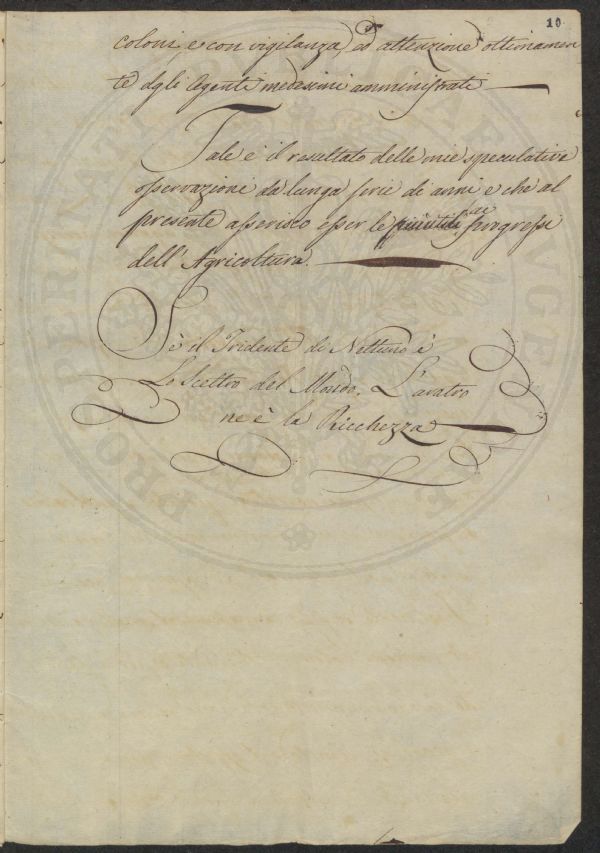 10
coloni, e con vigilanza, ed attenzione ottimamen
te dgli Agenti medesimi amministrati
Tale è il resultato delle mie speculative
osservazioni da lunga serie di anni e che al
presente asserisco esser le più utili progressi
dell'Agricoltura.
Sè il Tridente di Nettuno è
Lo Scettro del Mondo, L'aratro
ne è la Ricchezza
PROSPERITATI PUBLICAE AUGENDAE